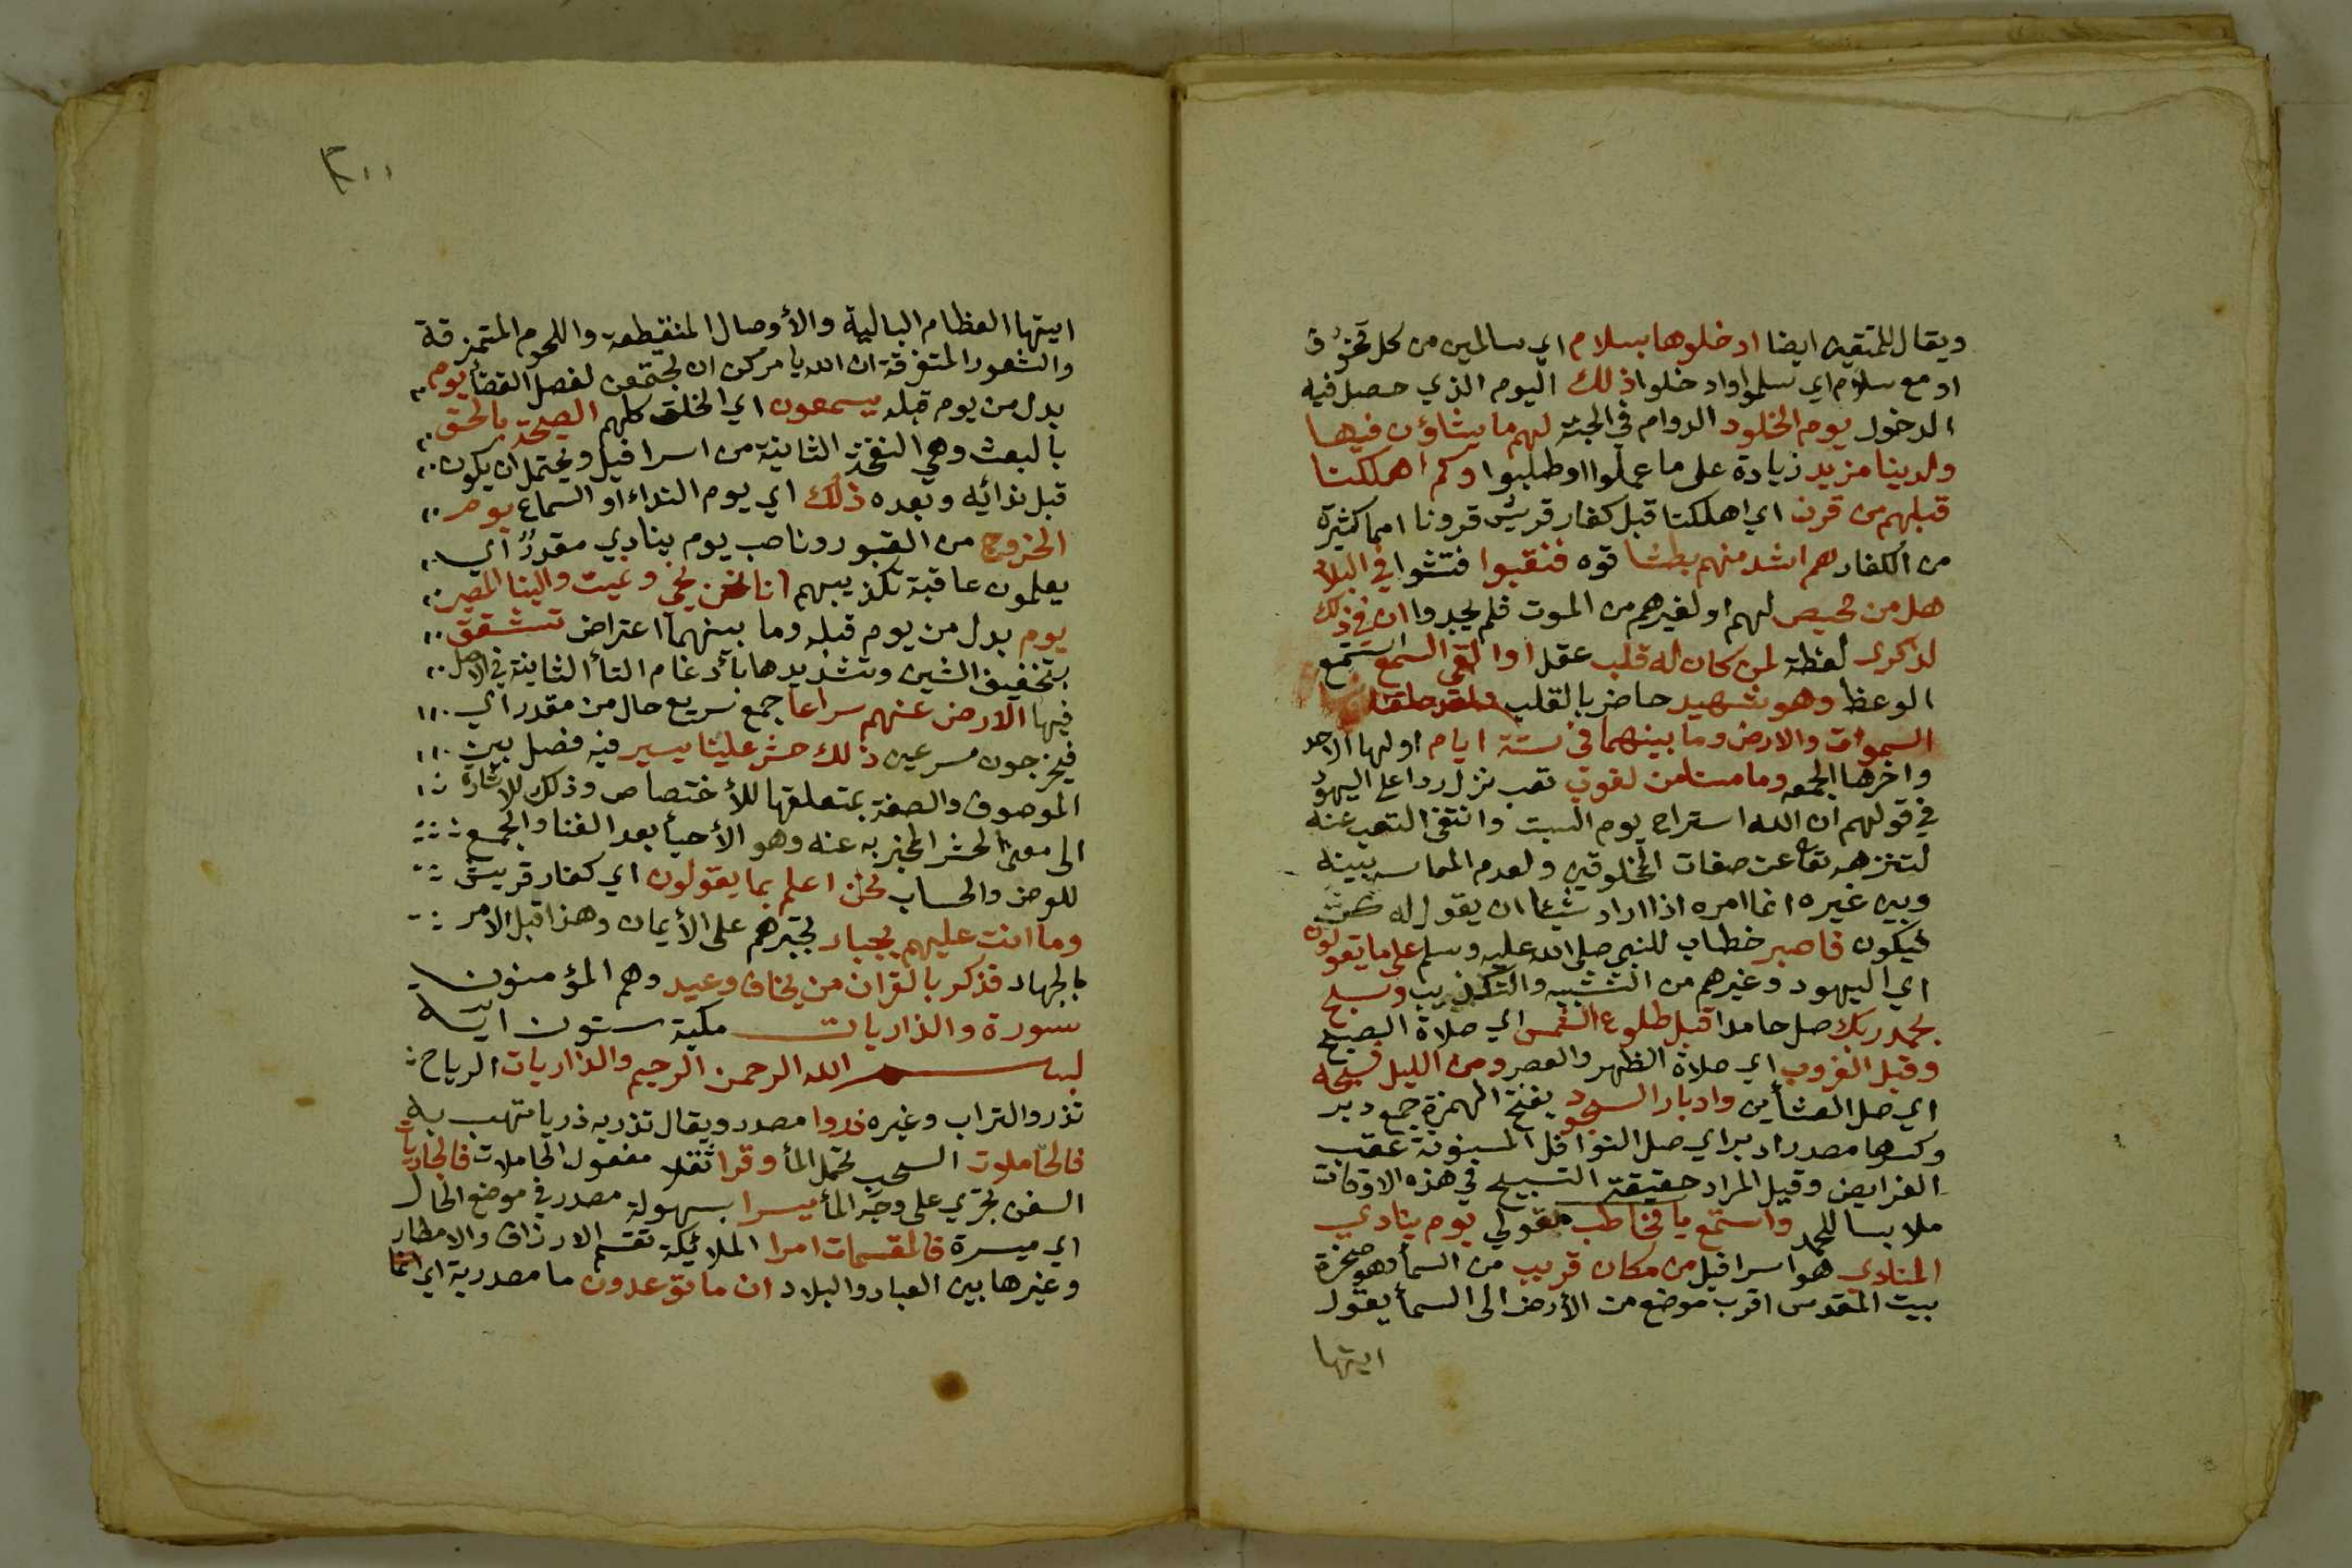 ويقال للمتقين ايضا ادخلوها بسلام اي سالمين من كل مخوف
او مع سلام اي سلموا وادخلوا ذلك اليوم الذي حصل فيه
الدخول يوم الخلود الدوام في الجنة لهم ما يشاؤن فيها
ولدينا مزيد زيادة على ما عملوا او طلبوا وكم اهلكنا
قبلهم من قرن اي اهلكنا قبل كفار قريش قرونا امما كثيرة
من الكفار هم اشد منهم بطشا قوه فنقبوا فتشوا في البلاد
هل من محيص لهم او لغيرهم من الموت فلم يجدوا ان في ذلك
لذكرى لعظة لمن كان له قلب عقل او القى السمع استمع
الوعظ وهو شهيد حاضر بالقلب ولقد خلقنا
السموات والارض وما بينهما في ستة ايام اولها الاحد
واخرها الجمعه وما مسنا من لغوب تعب نزل ردا على اليهود
في قولهم ان الله استراح يوم السبت وانتفى التعب عنه
لتنزهه تعا عن صفات المخلوقين ولعدم المماسه بينه
وبين غيره انما امره اذا اراد شيئا ان يقول له كن
فيكون فاصبر خطاب للنبي صلى الله عليه وسلم على ما يقولون
اي اليهود وغيرهم من التشبيه والتكذيب وسبح
بحمد ربك صل حامدا قبل طلوع الشمس اي صلاة الصبح
وقبل الغروب اي صلاة الظهر والعصر ومن الليل فسبحه
اي صل العشأين وادبار السجود بفتح الهمزة جمع دبر
وكسرها مصدر ادبر اي صل النوافل المسنونة عقب
الفرايض وقيل المراد حقيقة التسبيح في هذه الاوقات
ملابسا للحمد واستمع يا مخاطب مقولي يوم ينادي
المنادي هو اسرافيل من مكان قريب من السمأ وهو صخرة
بيت المقدس اقرب موضع من الأرض الى السمأ يقول
ايتها
٢٠٠
ايتها العظام البالية والأوصال المنقطعة واللحوم المتمزقة
والشعور المتفرقة ان الله يامركن ان تجتمعن لفصل القضأ يوم
بدل من يوم قبله يسمعون اي الخلق كلهم الصيحة بالحق
بالبعث وهي النفخة الثانية من اسرافيل ويحتمل ان يكون
قبل ندائيه وبعده ذلك اي يوم النداء او السماع يوم
الخروج من القبور وناصب يوم ينادي مقدرٌ اي
يعلمون عاقبة تكذيبهم انا نحن نحي ونميت والينا المصير
يوم بدل من يوم قبله وما بينهما اعتراض تشقق
بتخفيف الشين وتشديدها بأدغام التأ الثانية في الاصل
فيها الارض عنهم سراعا جمع سريع حال من مقدر اي
فيخرجون مسرعين ذلك حشر علينا يسير فيه فصل بين
الموصوف والصفة بمتعلقها للأختصاص وذلك للاشارة
الى معنى الحشر المخبر به عنه وهو الأحيأ بعد الفنا والجمع
للعرض والحساب نحن اعلم بما يقولون اي كفار قريش
وما انت عليهم بجبار تجبرهم على الأيمان وهذا قبل الامر
بالجهاد فذكر بالقران من يخاف وعيد وهم المؤمنون
سورة والذاريات مكية ستون اية
بسم الله الرحمن الرحيم والذاريات الرياح
تذروا التراب وغيره ذروا مصدر ويقال تذريه ذريا تهب به
فالحاملات السحب تحمل المأ وقرا ثقلا مفعول الحاملات فالجاريات
السفن تجري على وجه المأ يسرا بسهولة مصدر في موضع الحال
اي ميسرة فالمقسمات امرا الملائيكة تقسم الارزاق والامطار
وغيرها بين العباد والبلاد ان ما توعدون ما مصدرية اي انما